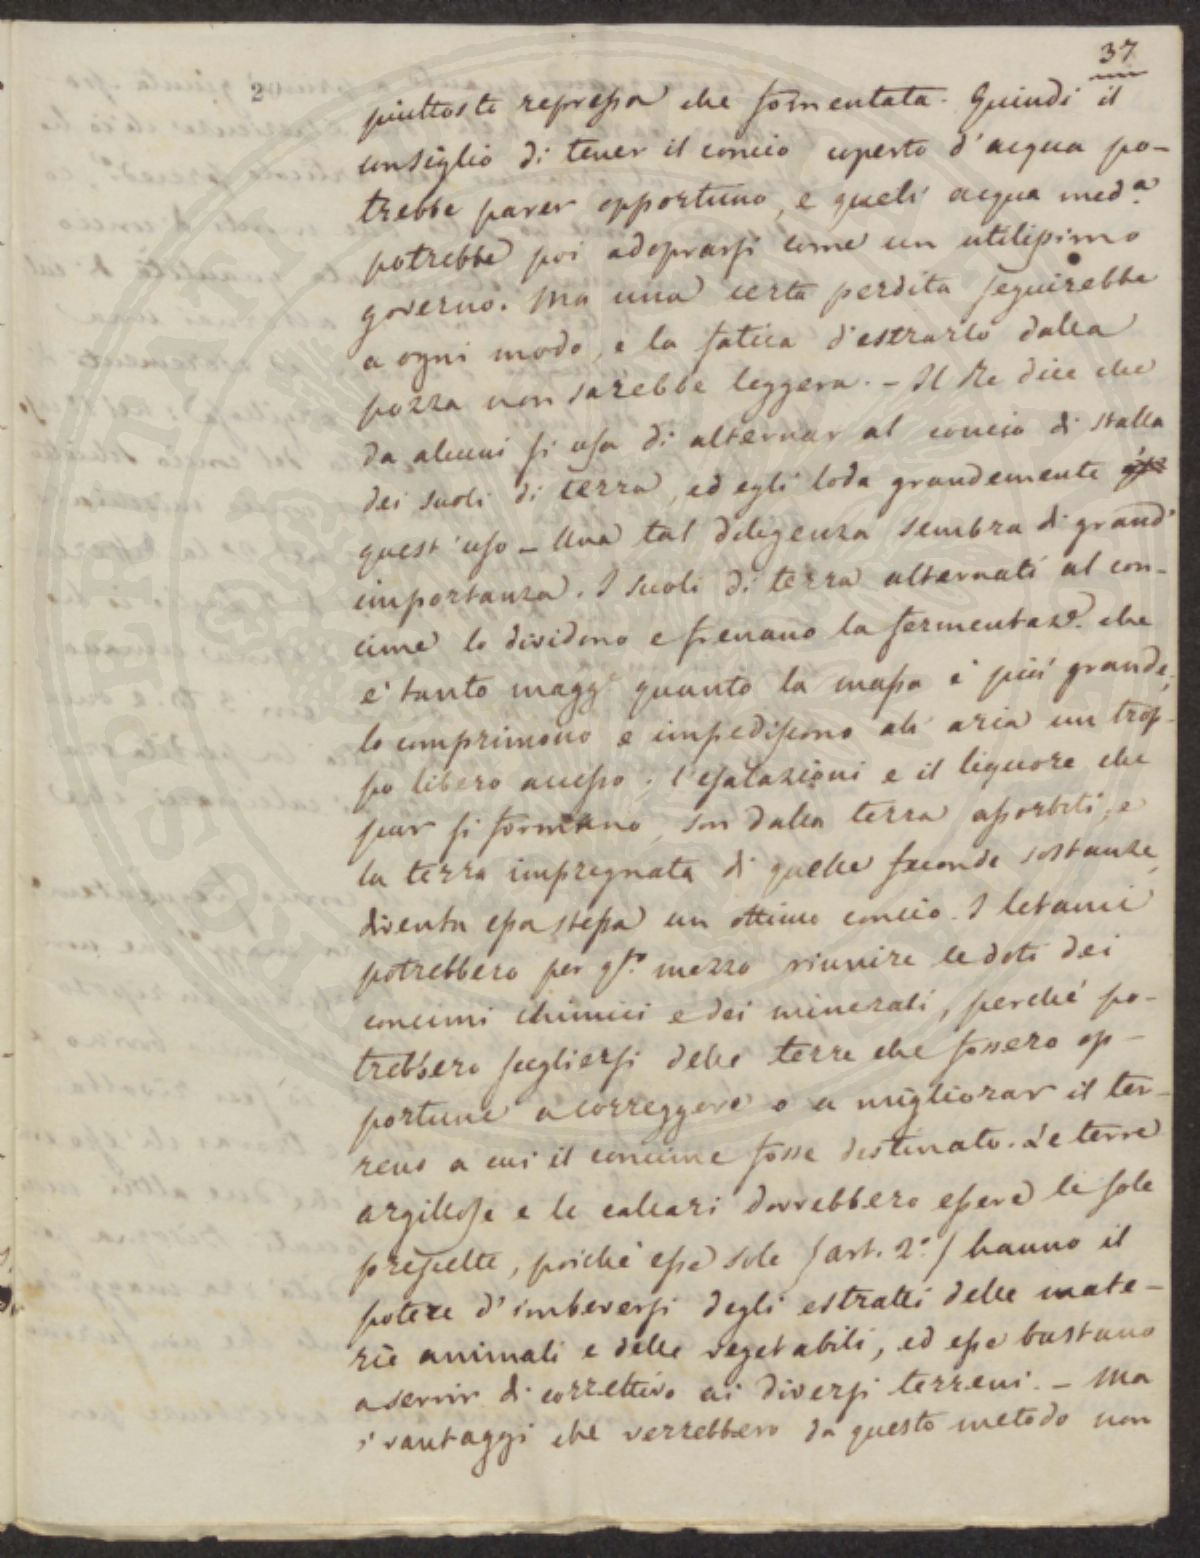 37
2
piuttosto repressa che fomentata. Quindi il
consiglio di tener il concio coperto d'acqua po-
trebbe parer opportuno, e quell' acqua med.a
potrebbe poi adoprarsi come un utilissimo
governo. Ma una certa perdita seguirebbe
a ogni modo, e la fatica d'estrarlo dalla
pozza non sarebbe leggera. – Il Re dice che
da alcuni si usa di alternar al concio di stalla
dei suoli di terra, ed egli loda grandemente
quest'uso – Una tal diligenza sembra di grand'
importanza. I suoli di terra alternati al con-
cime lo dividono e frenano la fermentaz.e che
e' tanto magg.e quanto la massa è più grande;
lo comprimono e impediscono all' aria un trop-
po libero accesso; l'esalazioni e il liquore che
pur si formano, son dalla terra assorbiti; e
la terra impregnata di quelle feconde sostanze,
diventa essa stessa un ottimo concio. I letami
potrebbero per q.to mezzo riunire le doti dei
concimi chimici e dei minerali, perché po-
trebbero scegliersi delle terre che fossero op-
portune a correggere o a migliorar il ter-
reno a cui il concime fosse destinato. Le terre
argillose e le calcari dovrebbero essere le sole
prescelte, poiché esse sole (art. 2.o) hanno il
potere d'imbeversi degli estratti delle mate-
rie animali e delle vegetabili, ed esse bastano
a servir di correttivo ai diversi terreni. – Ma
i vantaggi che verrebbero da questo metodo non